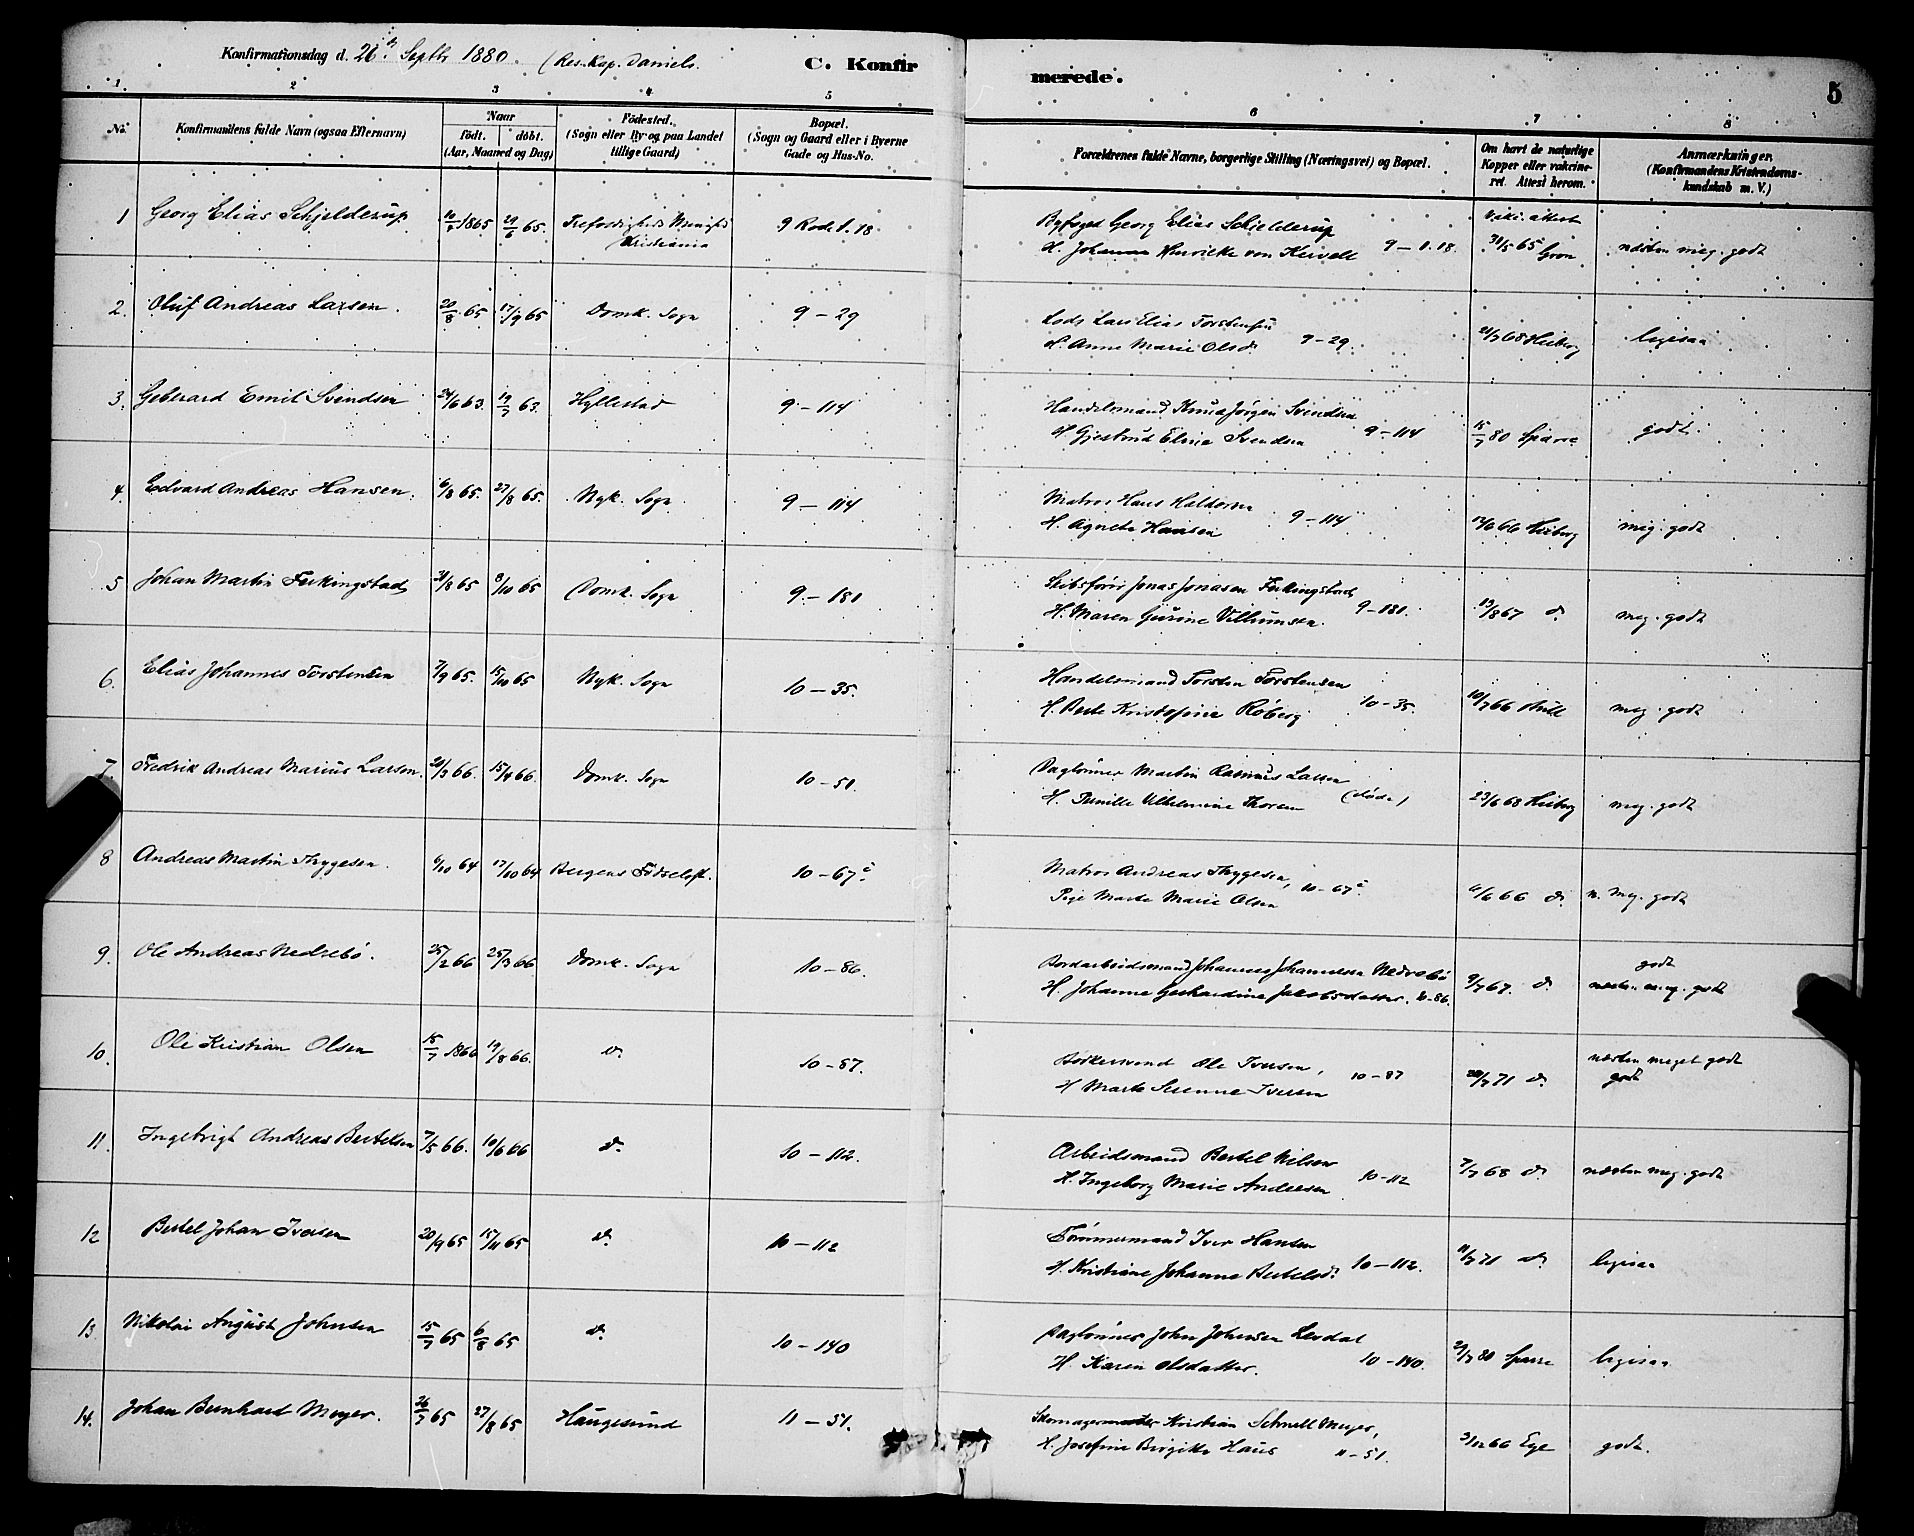 Konfirmationsdag d. 26 Septbr 1880. (Res. Kap. Daniels.
C. Konfirmerede.
5
1 2 3 4 5 6 7 8
No.
Konfirmandens fulde Navn (ogsaa Efternavn)
Naar
födt. döbt.
(Aar, Maaned og Dag)
Födested.
(Sogn eller By og paa Landet
tillige Gaard)
Bopæl.
(Sogn og Gaard eller i Byerne
Gade og Hus-No.
Forældrenes fulde Navne, borgerlige Stilling (Næringsvei) og Bopæl.
Om havt de naturlige
Kopper eller vakcine-
ret. Attest herom.
Anmærkninger.
(Konfirmandens Kristendoms-
kundskab m. V.)
1 Georg Elias Schjelderup 1865 29/6 65. Trefoldigheds Menighed
Kristiania
9 Rode 1.18
Byfoged Georg Elias Schjelderup
H. Johanna Henrikke von 9 – 1.18.
Vakc. attest
31/5 65
næsten meg. godt
2. Oluf Andreas Larsen. 20/8 65 17/9 65 Domk. Sogn 9 – 29
Lods Lars Elias Torstensen
H. Anne Marie Olsd. 9 – 29.
21/7 68 Heiberg ligesaa
3. Geberard Emil Svendsen 24/6 63. 19/7 63. Hyllestad 9 – 114
Handelsmand Knud Jørgen Svendsen
H. Gjertrud Eline Svendsen 9 – 114
15/7 80 Sparre godt.
4. Edvard Andreas Hansen. 6/8 65. 27/8 65. Nyk. Sogn 9 – 114
Matros Hans
H. Agnete Hansen 9 – 114
12/6 66 Heiberg meg. godt
5 Johan Martin Ferkingstad 31/8 65 8/10 65 Domk. Sogn 9 – 181
Skibsfører Jonas Jonasen Ferkingstad
H. Maren Gurine Villumsen. 9 – 181.
13/8 67 do. meg. godt
6. Elias Johannes Torstensen 7/9 65. 15/10 65 Nyk. Sogn 10 – 35.
Handelsmand Torsten Torstensen
H. Kristofine Roberg 10 – 35.
10/7 66 meg. godt
7. Fredrik Andreas Marius Larsen. 20/3 66. 15/4 66. Domk. Sogn 10 – 51.
Daglönner Martin Rasmus Larsen
H. Pernille Vilhelmine Thorsen (døde)
23/6 68 Heiberg meg. godt
8 Andreas Martin Thygesen. 6/10 64 17/10 64 Bergens Födselsst. 10 – 67
Matros Andreas Thygesen,
Pige Marta Marie Olsen 10 – 67
6/6 66 do. n. meg. godt
9. Ole Andreas Nedrebö. 25/2 66 25/3 66 Domk. Sogn 10 – 86.
Johannes Johannesen Nedrebö
H. Johanne Gerhardine Jakobsdatter. 10–86.
9/7 67. do. godt
næsten meg. godt
10. Ole Kristian Olsen 15/7 1866 19/8 66. do. 10 – 87.
Bödkersvend Ole Iversen,
H. Marta Iversen 10 – 87
71 do. næsten meget godt
godt
11. Ingebrigt Andreas Bertelsen 7/5 66. 10/6 66 do. 10 – 112.
Arbeidsmand Bertel Nilsen
H. Ingeborg Marie Andersen 10 – 112
7/7 68 do. næsten meg. godt
12 Bertel Johan Iversen 20/9 65 15/11 65 do. 10 – 112
Tømmermand Iver Hansen
H. Kristiane Johanna Bertelsd. 10 – 112.
11/7 71 do. ligesaa
13. Nikolai August Johnsen 15/7 65 6/8 65 do. 10 – 140
Daglönner John Johnsen Lerdal
H. Karen Olsdatter. 10 – 140.
80 Sparre ligesaa
14. Johan Bernhard Meyer. 26/7 65 27/8 65 Haugesund 11 – 51.
Skomagermester Kristian Schnell Meyer,
H. Josefine Birgitte Haus 11 – 51.
3/12 66 Ege godt.